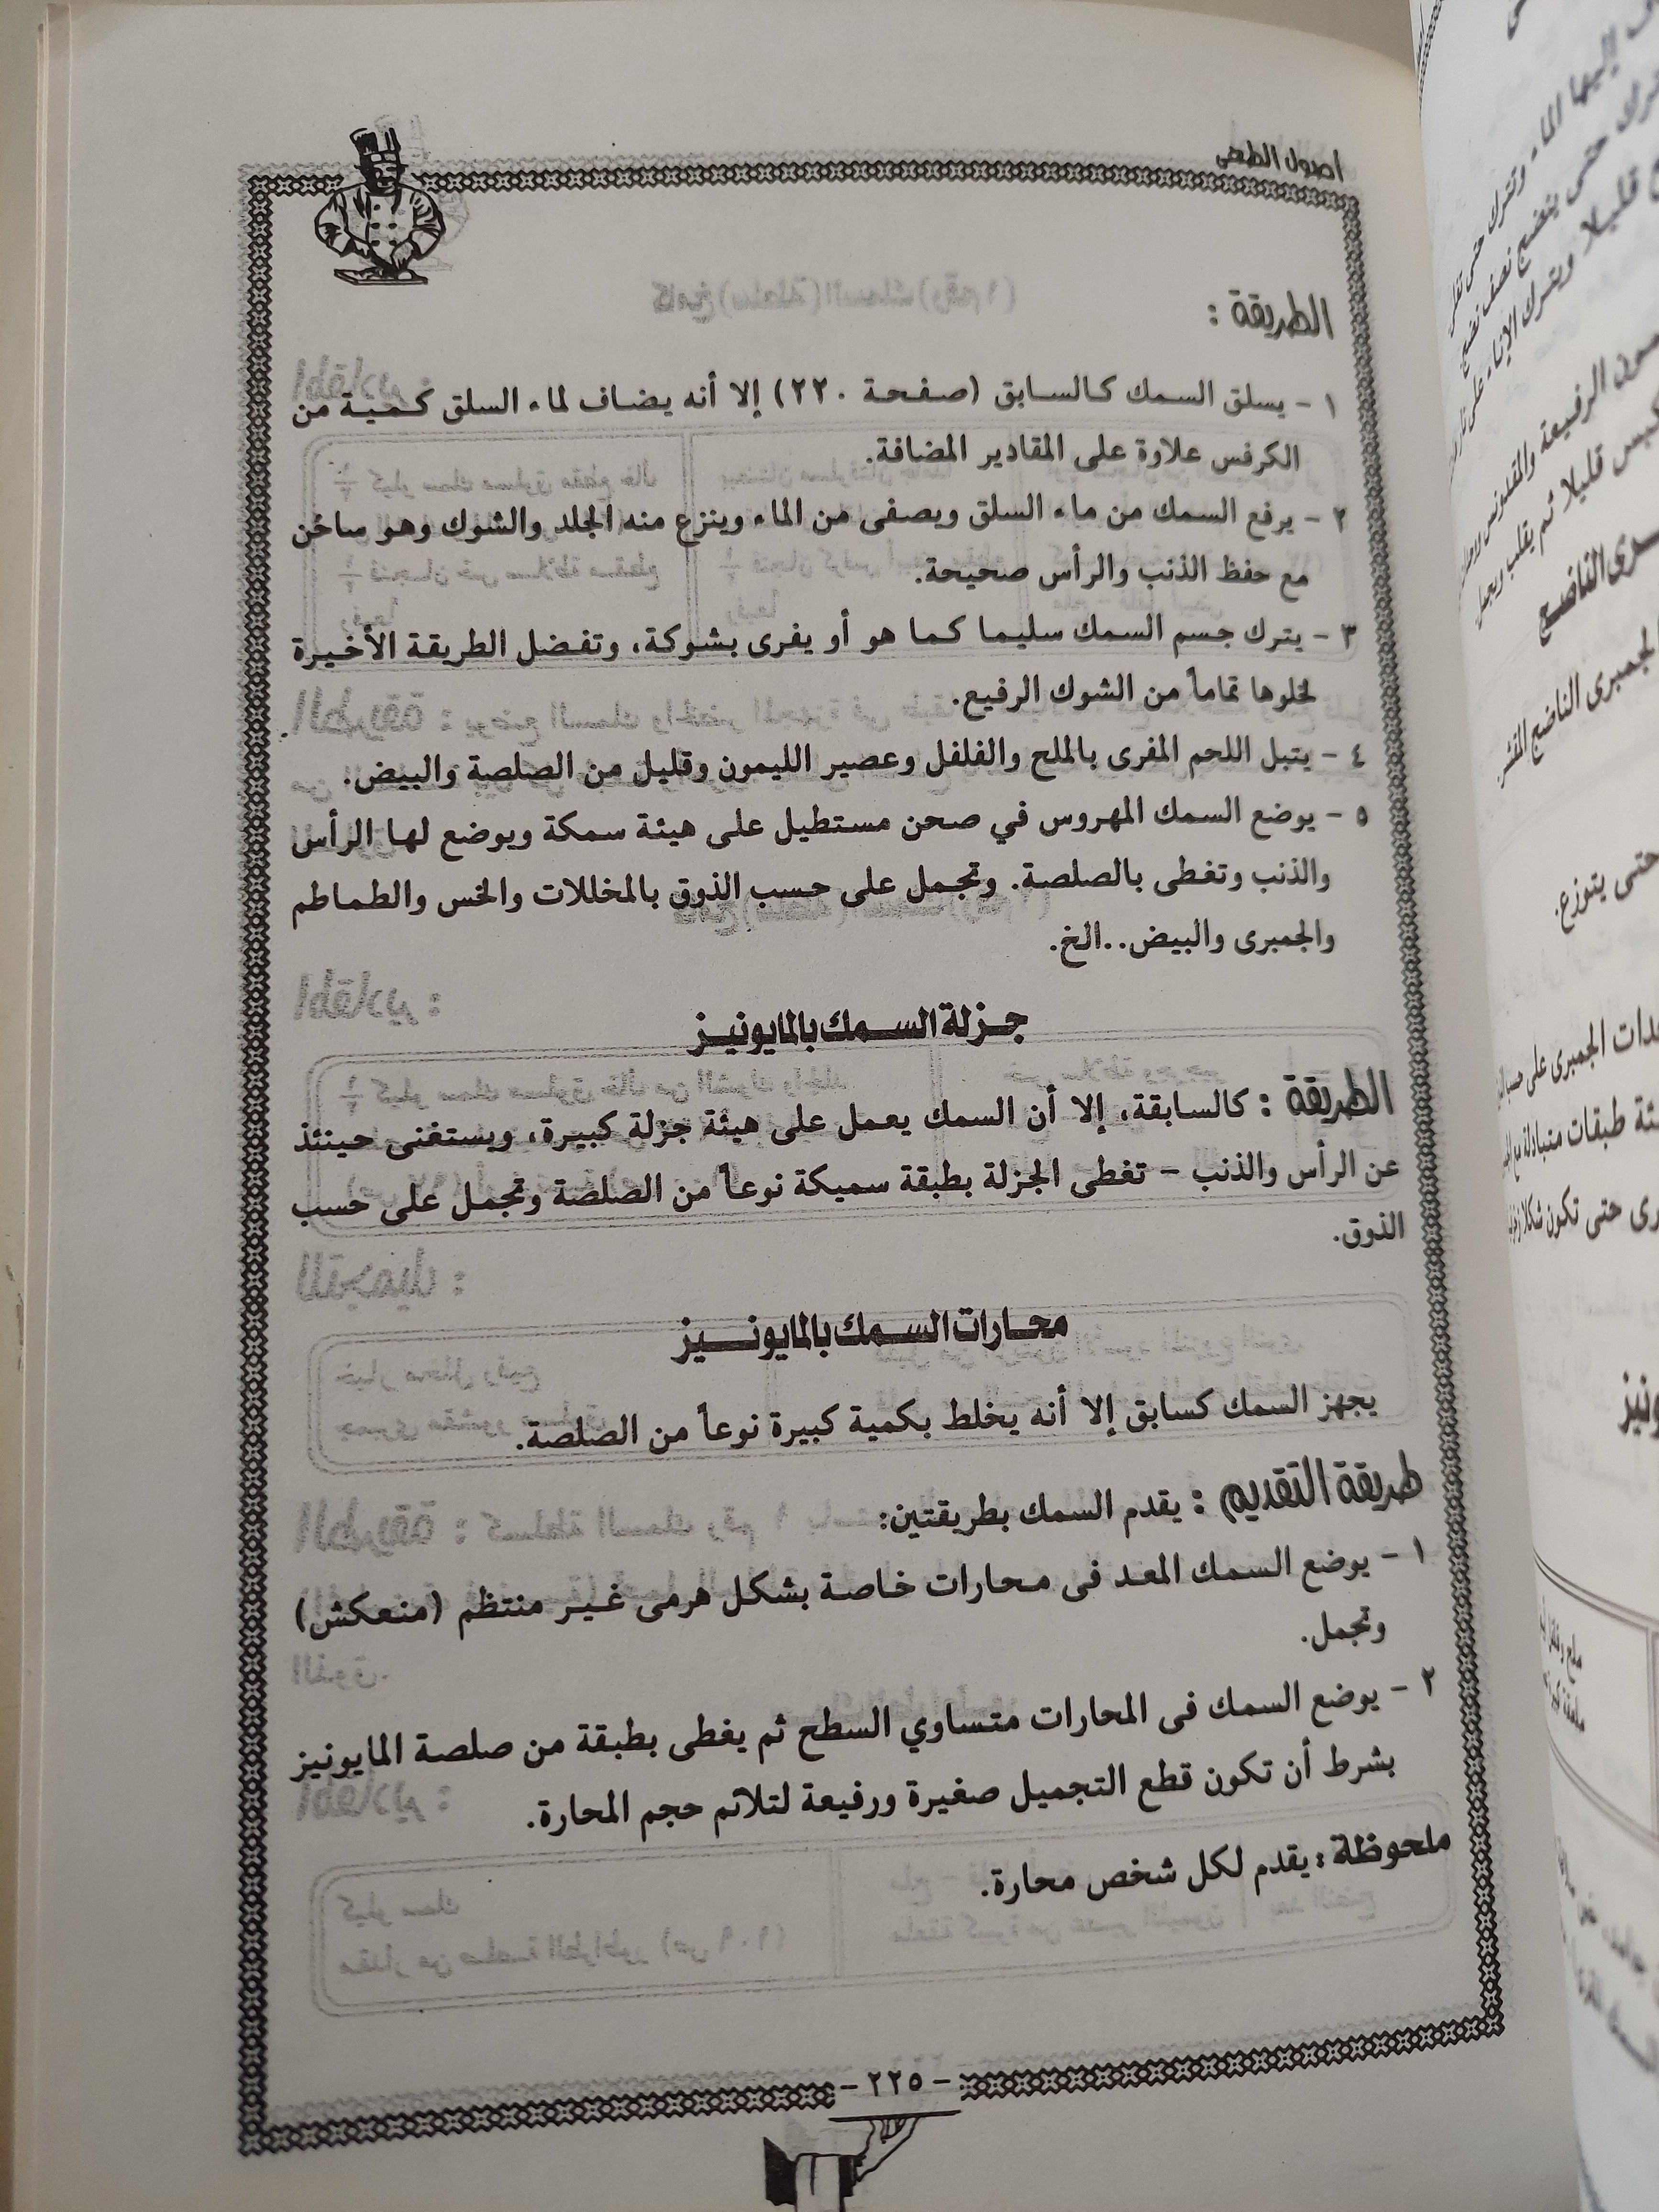 أصول الطهى
الطريقة :
١ - يسلق السمك كالسابق (صفحة ٢٢٠) إلا أنه يضاف لماء السلق كمية من
الكرفس علاوة على المقادير المضافة.
٢ - يرفع السمك من ماء السلق ويصفى من الماء وينزع منه الجلد والشوك وهو ساخن
مع حفظ الذنب والرأس صحيحة.
٣ - يترك جسم السمك سليما كما هو أو يفرى بشوكة، وتفضل الطريقة الأخيرة
لخلوها تماماً من الشوك الرفيع.
٤ - يتبل اللحم المفرى بالملح والفلفل وعصير الليمون وقليل من الصلصة والبيض.
٥ - يوضع السمك المهروس في صحن مستطيل على هيئة سمكة ويوضع لها الرأس
والذنب وتغطى بالصلصة. وتجمل على حسب الذوق بالمخللات والخس والطماطم
والجمبرى والبيض..الخ.
جزلة السمك بالمايونيز
الطريقة : كالسابقة، إلا أن السمك يعمل على هيئة جزلة كبيرة، ويستغنى حينئذ
عن الرأس والذنب - تغطى الجزلة بطبقة سميكة نوعاً من الصلصة وتجمل على حسب
الذوق.
محارات السمك بالمايونيز
يجهز السمك كسابق إلا أنه يخلط بكمية كبيرة نوعاً من الصلصة.
طريقة التقديم : يقدم السمك بطريقتين:
١ - يوضع السمك المعد فى محارات خاصة بشكل هرمى غير منتظم (منعكش)
وتجمل.
٢ - يوضع السمك فى المحارات متساوي السطح ثم يغطى بطبقة من صلصة المايونيز
بشرط أن تكون قطع التجميل صغيرة ورفيعة لتلائم حجم المحارة.
ملحوظة : يقدم لكل شخص محارة.
- ٢٢٥ -